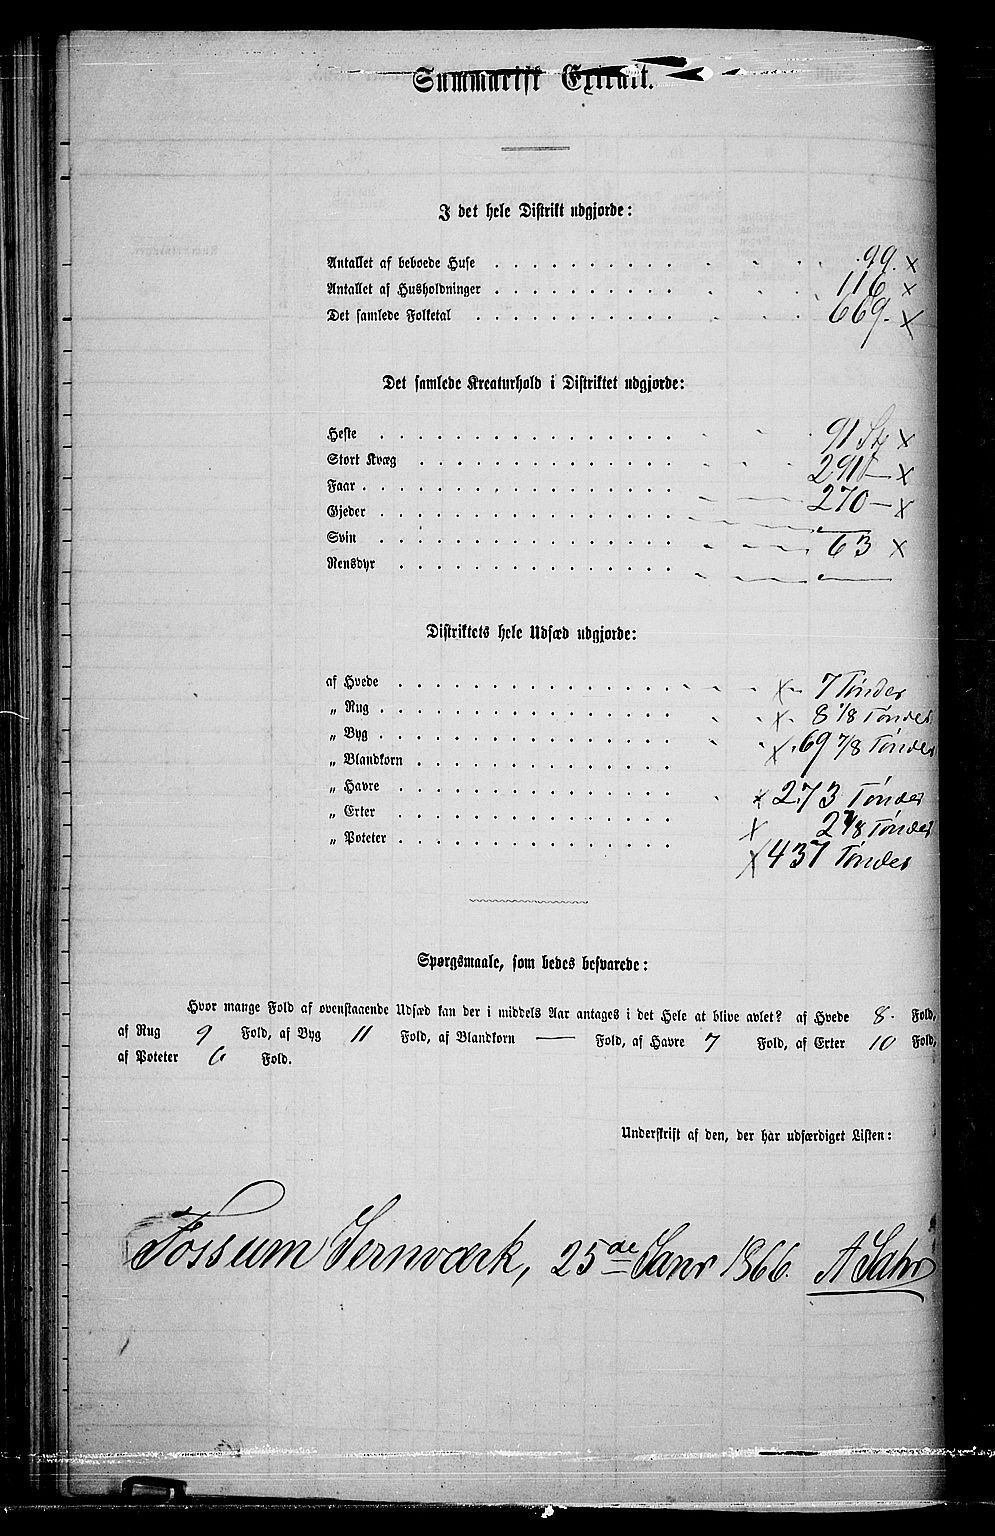 Summarisk Extrakt.
I det hele Distrikt udgjorde:
Antallet af beboede Huse . . . . . . . . . . 99. x
Antallet af Husholdninger . . . . . . . . . . 116 x
Det samlede Folketal . . . . . . . . . . . 669. x
Det samlede Kreaturhold i Distriktet udgjorde:
Heste . . . . . . . . . . . . . . . . 91 St x
Stort Kvæg . . . . . . . . . . . . . . 291 — x
Faar . . . . . . . . . . . . . . . . . 270 — x
Gjeder . . . . . . . . . . . . . . . . —
Svin . . . . . . . . . . . . . . . . 63 x
Rensdyr . . . . . . . . . . . . . . . —
Distriktets hele Udsæd udgjorde:
af Hvede . . . . . . . . . . . . . . . x 7 Tønder
„ Rug . . . . . . . . . . . . . . . . x 8 1/8 Tønder
„ Byg . . . . . . . . . . . . . . . . x 69 7/8 Tønder
„ Blandkorn . . . . . . . . . . . . . .
„ Havre . . . . . . . . . . . . . . . x 273 Tønder
„ Erter . . . . . . . . . . . . . . . x 2 7/8 Tønder
„ Poteter . . . . . . . . . . . . . . . x 437 Tønder
Spørgsmaale, som bedes besvarede:
Hvor mange Fold af ovenstaaende Udsæd kan der i middels Aar antages i det Hele at blive avlet? af Hvede 8. Fold,
af Rug 9 Fold, af Byg 11 Fold, af Blandkorn — Fold, af Havre 7 Fold, af Erter 10 Fold,
af Poteter 6 Fold.
Underskrift af den, der har udfærdiget Listen:
Fossum Jernværk, 25de Janr 1866. A Jahr